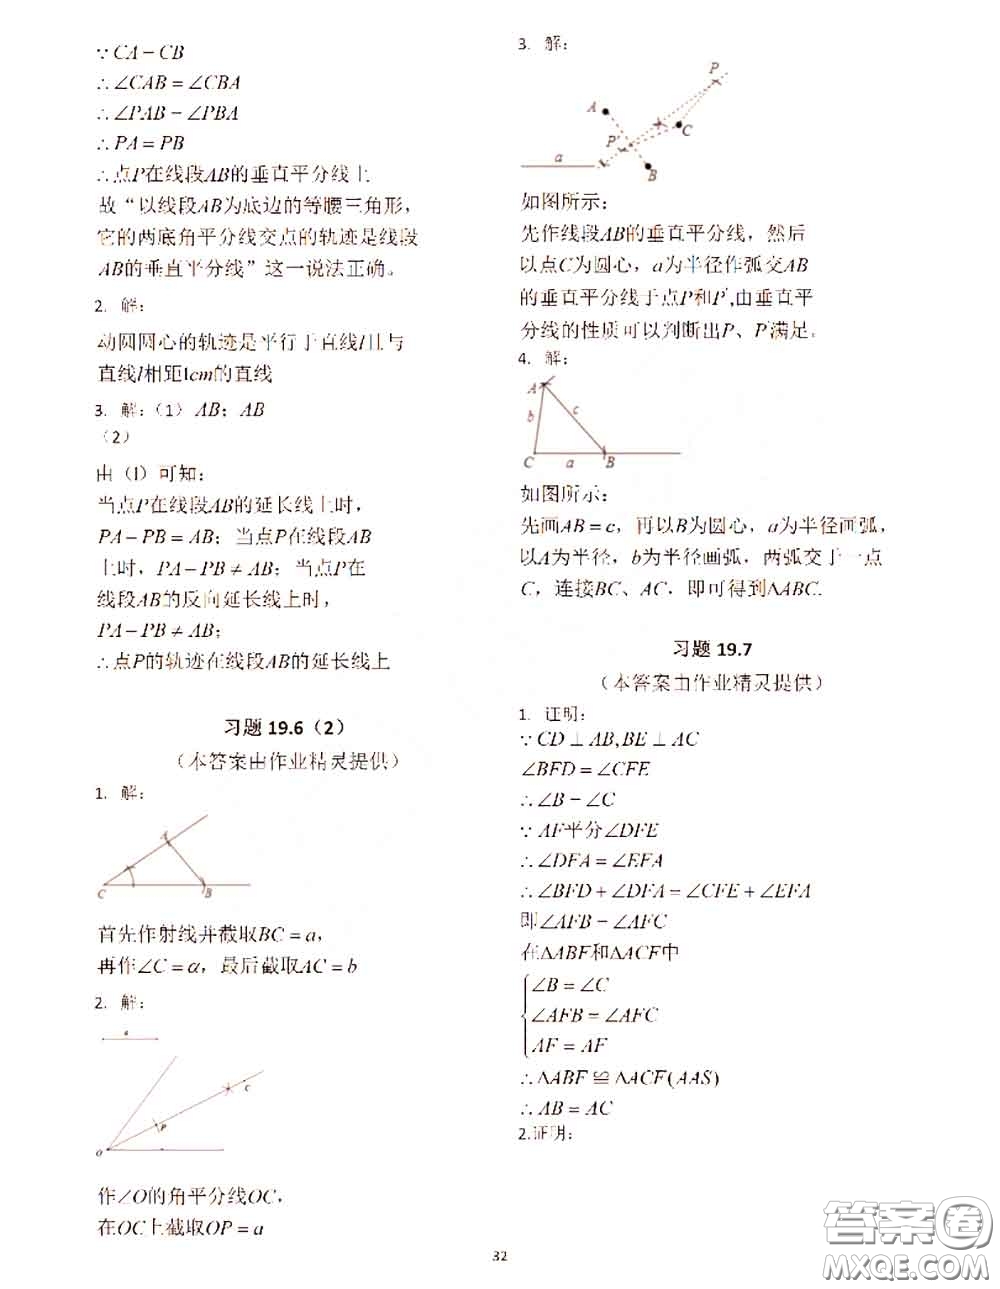 ∵CA－CB
∴∠CAB＝∠CBA
∴∠PAB－∠PBA
∴PA＝PB
∴点P在线段AB的垂直平分线上
故“以线段AB为底边的等腰三角形，
它的两底角平分线交点的轨迹是线段
AB的垂直平分线”这一说法正确。
2. 解：
动圆圆心的轨迹是平行于直线l且与
直线l相距1cm的直线
3. 解：（1）AB；AB
（2）
由（1）可知：
当点P在线段AB的延长线上时，
PA－PB＝AB；当点P在线段AB
上时，PA－PB≠AB；当点P在
线段AB的反向延长线上时，
PA－PB≠AB；
∴点P的轨迹在线段AB的延长线上
习题 19.6（2）
（本答案由作业精灵提供）
1. 解：
A
C
B
首先作射线并截取BC＝a，
再作∠C＝α，最后截取AC＝b
2. 解：
a
C
P
O
作∠O的角平分线OC，
在OC上截取OP＝a
3. 解：
P
A
C
P'
a
B
如图所示：
先作线段AB的垂直平分线，然后
以点C为圆心，a为半径作弧交AB
的垂直平分线于点P和P',由垂直平
分线的性质可以判断出P、P'满足。
4. 解：
A
b
c
C
a
B
如图所示：
先画AB＝c，再以B为圆心，a为半径画弧，
以A为半径，b为半径画弧，两弧交于一点
C，连接BC、AC，即可得到△ABC.
习题 19.7
（本答案由作业精灵提供）
1. 证明：
∵CD⊥AB,BE⊥AC
∠BFD＝∠CFE
∴∠B－∠C
∵AF平分∠DFE
∴∠DFA＝∠EFA
∴∠BFD＋∠DFA＝∠CFE＋∠EFA
即∠AFB－∠AFC
在△ABF和△ACF中
∠B＝∠C
∠AFB＝∠AFC
AF＝AF
∴△ABF≌△ACF(AAS)
∴AB＝AC
2.证明：
32
答案卷
MXQE.COM